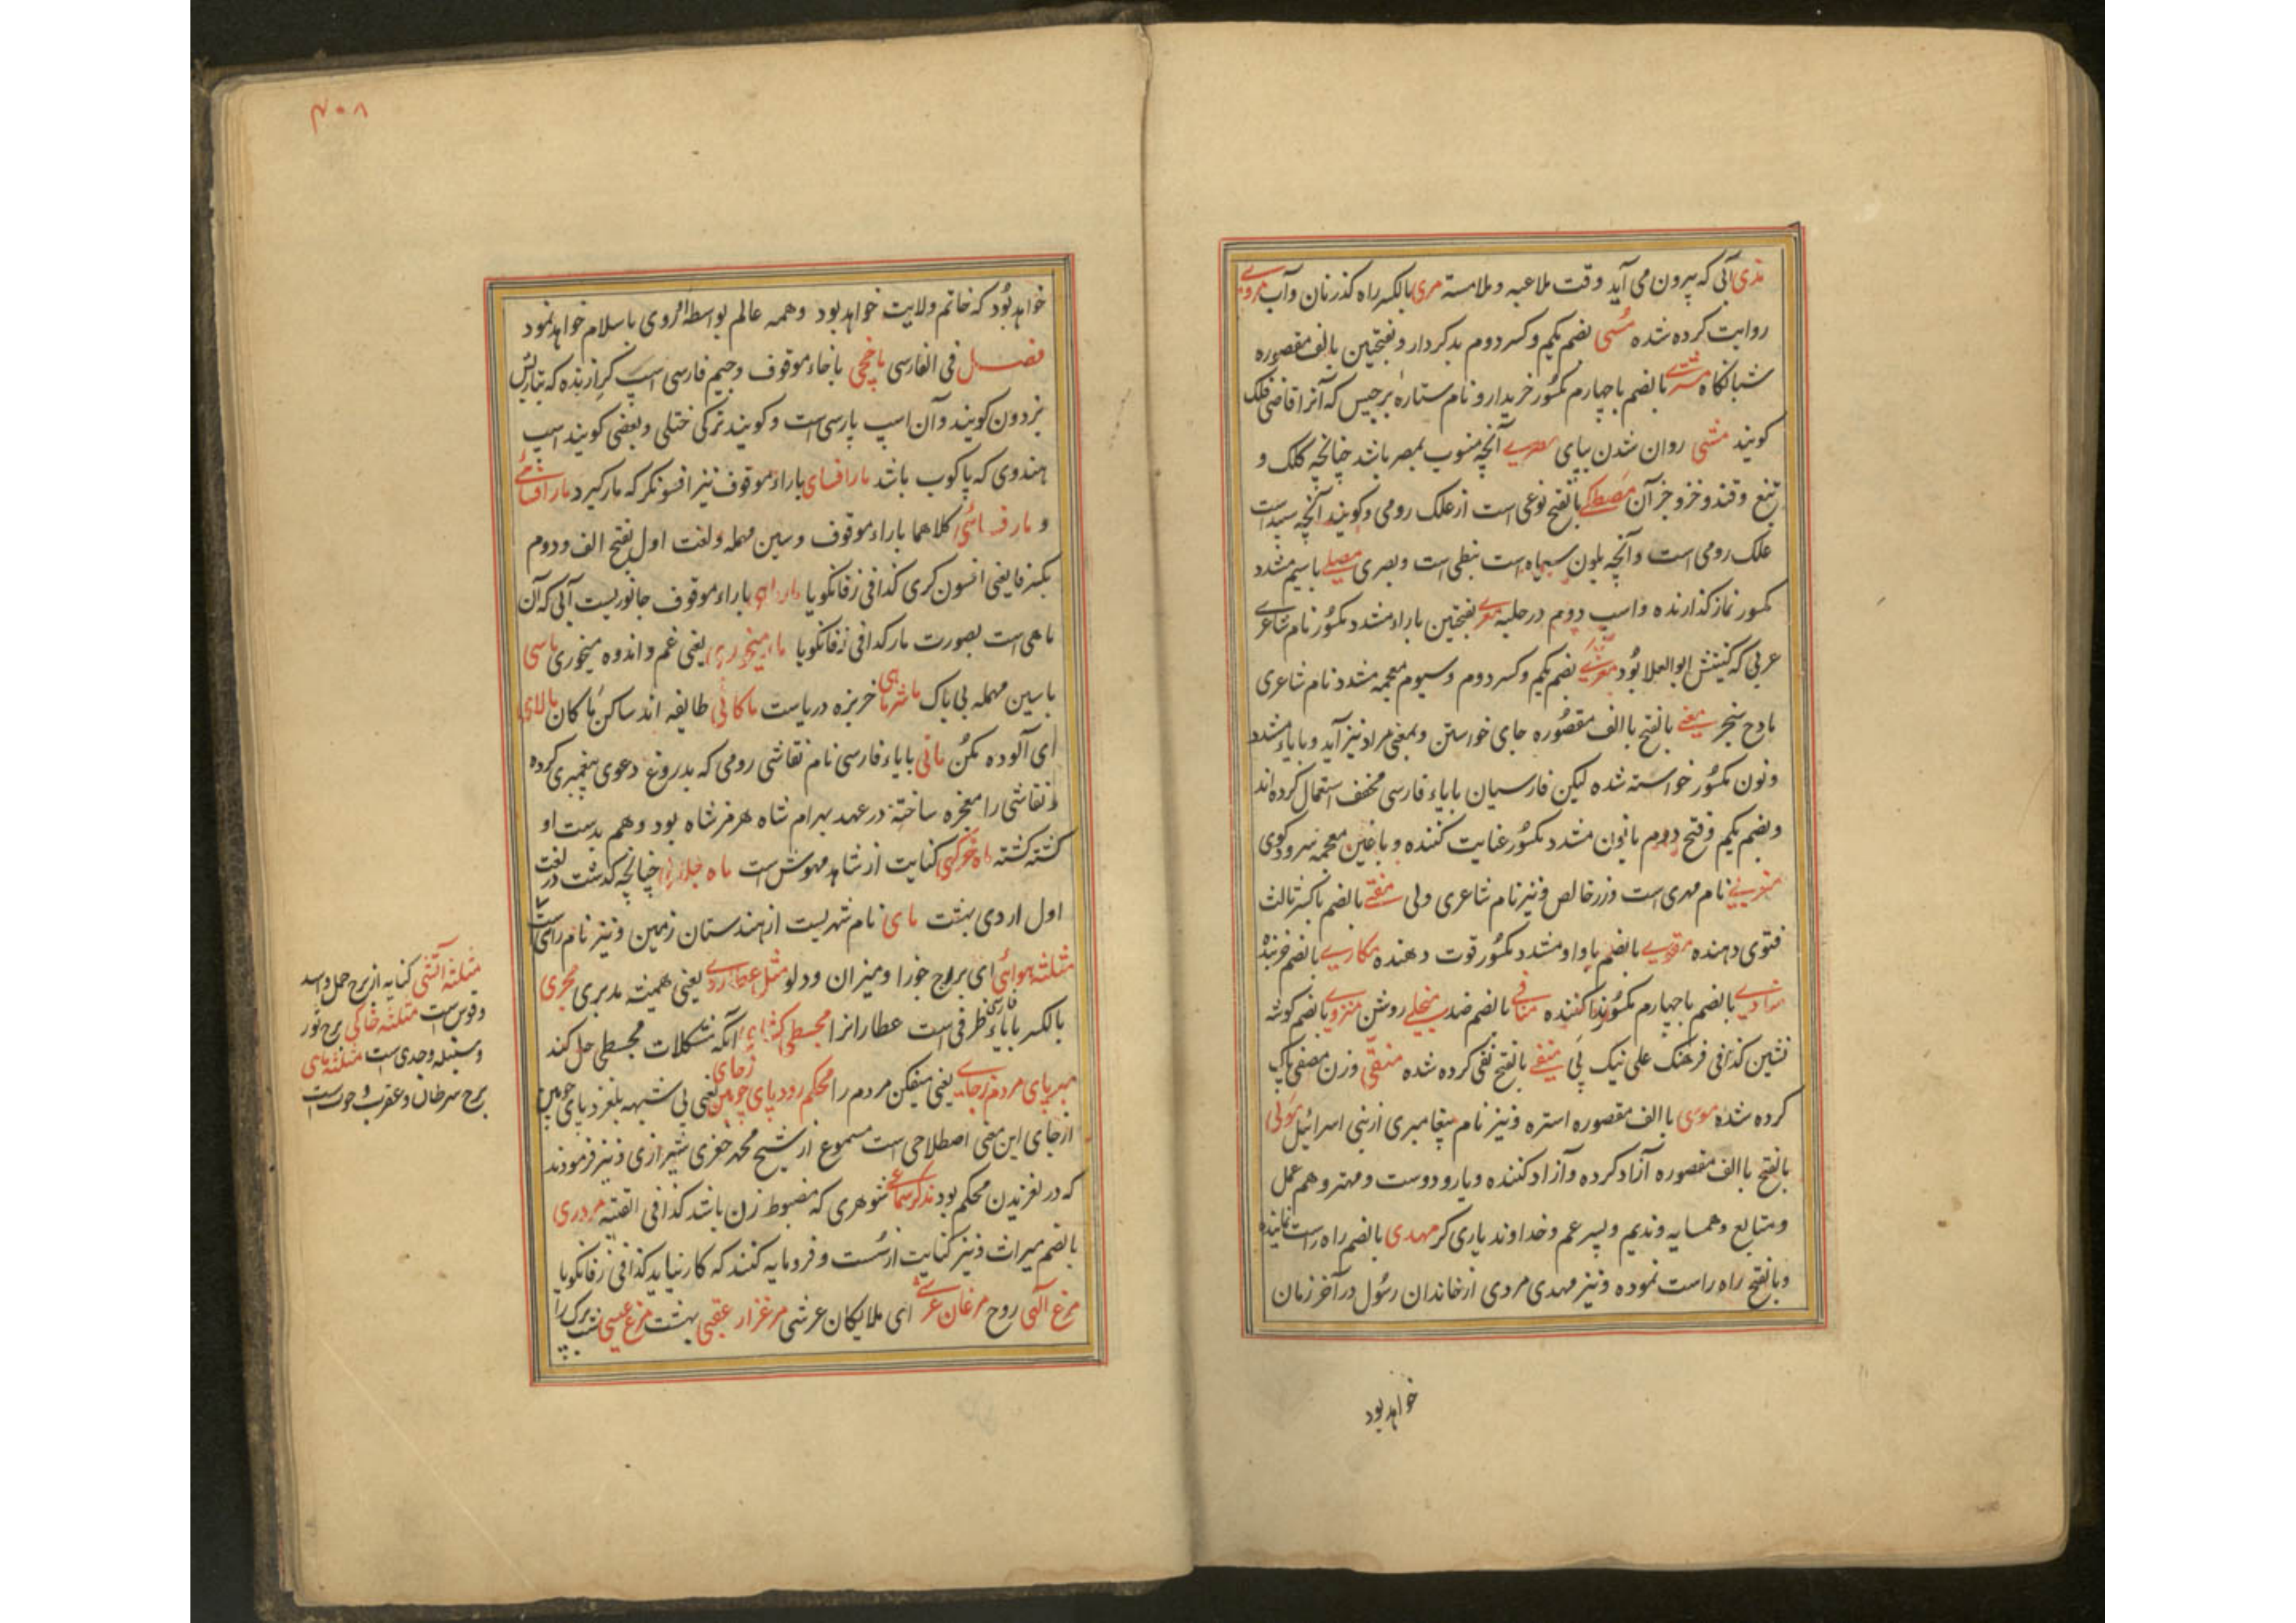 مذی آبی که بیرون می آید وقت ملاعبه و ملامسته مری بالکسر راه کذر نان و آب مروی
روایت کرده شده مسی بضم یکم و کسر دوم بدکردار و بفتحتین بالف مقصوره
شبانگاه مشتری بالضم با چهارم مکسور خریدار و نام ستاره برجیس که آنرا قاضی فلک
کویند مشی روان شدن بپای مصری آنچه منسوب بمصر باشد چنانچه کلک و
تیغ و قند و خز و جز آن مصطکی بالفتح نوعی است از علک رومی و کویند آنچه سپید است
علک رومی است و آنچه بلون سیاه است نبطی است و بصری مصلی با سیم مشدد
مکسور نماز کذارنده و اسپ دوم در حلبه معری بفتحتین باراء مشدد مکسور نام شاعری
عربی که کنیتش ابوالعلا بود معزی بضم یکم و کسر دوم و سیوم معجمه مشدد نام شاعری
مادح سنجر معنی بالفتح با الف مقصوره جای خواستن و بمعنی مراد نیز آید و با یاء مشدد
و نون مکسور خواسته شده لیکن فارسیان با یاء فارسی مخفف استعمال کرده اند
و بضم یکم و فتح دوم با نون مشدد مکسور عنایت کننده و با غین معجمه سرود کوی
مغربی نام مهری است و زر خالص و نیز نام شاعری ولی مفتی بالضم با کسر ثالث
فتوی دهنده مقوی بالضم با واو مشدد مکسور قوت دهنده مکاری بالضم
منادی بالضم با چهارم مکسور ندا کننده منافی بالضم ضد منجلی روشن منزوی بالضم کوشه
نشین کذا فی فرهنک علی نیک پی منفی بالفتح نفی کرده شده منقی وزن مصفی پاک
کرده شده موسی با الف مقصوره استره و نیز نام پیغامبری از بنی اسرائیل مولی
بالفتح با الف مقصوره آزاد کرده و آزاد کننده و یار و دوست و مهتر و هم عمل
و متابع و همسایه و ندیم و پسر عم و خداوند یاری کر مهدی بالضم راه راست نماینده
و بالفتح راه راست نموده و نیز مهدی مردی از خاندان رسول در آخر زمان
خواهد بود
۴۰۸
خواهد بود که خاتم ولایت خواهد بود و همه عالم بواسطه وی باسلام خواهد نمود
فصل فی الفارسی ماخچی با خاء موقوف و جیم فارسی اسپ که بتازیش
بردون کویند و آن اسپ پارسی است و کویند ترکی ختلی و بعضی کویند اسپ
هندوی که پاکوب باشد مارافسای باراء موقوف نیز افسونکر که مار کیرد مارافسائی
و مارفسائی کلاهما باراء موقوف و سین مهمله و لغت اول بفتح الف و دوم
بکسر فا یعنی افسون کری کذا فی زفانکویا مارماهی باراء موقوف جانوریست آبی که آن
ماهی است بصورت مار کذا فی زفانکویا یعنی غم و اندوه میخوری ماسی
با سین مهمله بی باک خربزه دریاست ماکانی طایفه اند ساکن ماکان مالای
ای آلوده مکن مانی با یاء فارسی نام نقاشی رومی که بدروغ دعوی پیغمبری کرده
نقاشی را معجزه ساخته در عهد بهرام شاه هرمز شاه بود و هم بدست او
کشته کشته ماه خرکهی کنایت از شاهد مهوش است ماه جلالی چنانچه کذشت در لغت
اول اردی بهشت مای نام شهریست از هندستان زمین و نیز نام رای است
مثلثه هوائی ای بروج جوزا و میزان و دلو مثل عطاردی یعنی همیشه مدبری مجری
بالکسر با یاء فارسی ظرفی است عطارانرا مجسطی کشای آنکه مشکلات مجسطی حل کند
مبر پای مردم زجای یعنی میفکن مردم را محکم رود پای چوبین زجای یعنی بی شبهه بلغزد پای چوبین
از جای این معنی اصطلاحی است مسموع از شیخ محمد جعفری شیرازی و نیز فرمودند
که در لغزیدن محکم بود شوهری که مضبوط زن باشد کذا فی القنیه مردری
بالضم میراث و نیز کنایت از سست و فرومایه کنند که کار نیاید کذا فی زفانکویا
مرغ آلهی روح مرغان عرشی ای ملایکان عرشی مرغزار عقبی بهشت مرغ عیسی
مثلثه آتشی کنایه از برج حمل و اسد
و قوس است مثلثه خاکی برج ثور
و سنبله و جدی است مثلثه مائی
برج سرطان و عقرب و حوت است